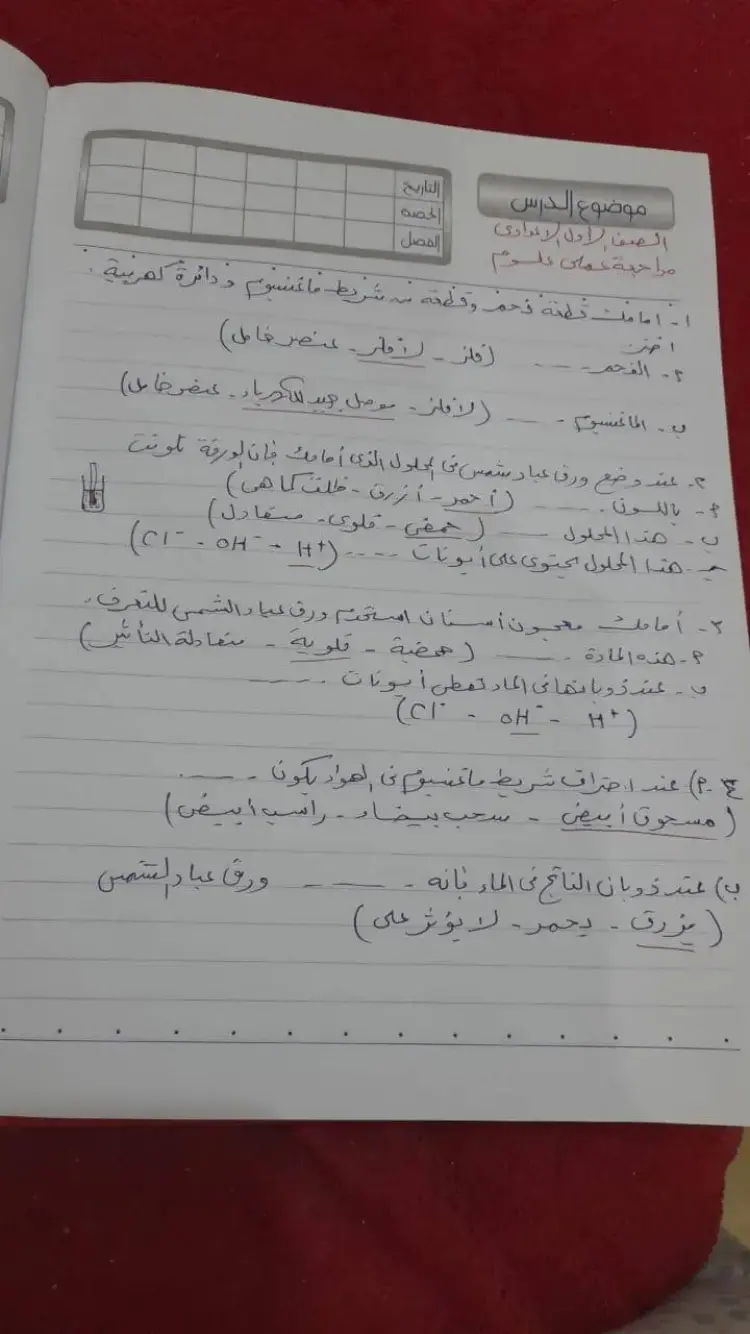 موضوع الدرس
التاريخ
الحصة
الفصل
الصف الأول الإعدادى
مراجعة عملى علوم
١- أمامك قطعة فحم وقطعة من شريط ماغنسيوم ودائرة كهربية.
اختر
٢- الفحم ---- (فلز - لافلز - عنصر خامل)
ب- الماغنسيوم ---- (لافلز - موصل جيد للكهرباء - عنصر خامل)
٢- عند وضع ورق عباد شمس فى المحلول الذى أمامك فإن الورقة تلونت
٩- باللون ---- (أحمر - أزرق - ظلت كما هى)
ب- هذا المحلول ---- (حمضى - قلوى - متعادل)
جـ- هذا المحلول يحتوى على أيونات ---- (H⁺ - OH⁻ - Cl⁻)
٣- أمامك معجون أسنان استخدم ورق عباد الشمس للتعرف.
٩- هذه المادة ---- (حمضية - قلوية - متعادلة التأثير)
ب- عند ذوبانها فى الماء تعطى أيونات ----
(H⁺ - OH⁻ - Cl⁻)
٤- ٩) عند احتراق شريط ماغنسيوم فى الهواء يكون ----.
(مسحوق أبيض - سحب بيضاء - راسب أبيض)
ب) عند ذوبان الناتج فى الماء فإنه ---- ورق عباد الشمس
(يزرق - يحمر - لا يؤثر على)